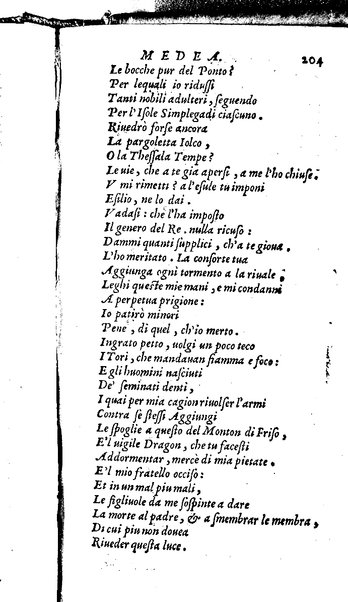 MEDEA. 204
Le bocche pur del Ponto?
Per lequali io ridussi
Tanti nobili adulteri, seguendo
Per l'Isole Simplegadi ciascuno.
Riuedrò forse ancora
La pargoletta Iolco,
O la Thessala Tempe?
Le uie, che a te gia apersi, a me l'ho chiuse.
V mi rimetti? a l'esule tu imponi
Esilio, ne lo dai.
Vadasi: che l'ha imposto
Il genero del Re. nulla ricuso:
Dammi quanti supplici, ch'a te gioua.
L'ho meritato. La consorte tua
Aggiunga ogni tormento a la riuale:
Leghi queste mie mani, e mi condanni
A perpetua prigione:
Io patirò minori
Pene, di quel, ch'io merto.
Ingrato petto, uolgi un poco teco
I Tori, che mandauan fiamma e foco:
E gli huomini nasciuti
De' seminati denti,
I quai per mia cagion riuolser l'armi
Contra se stessi Aggiungi
Le spoglie a questo del Monton di Friso,
E'l uigile Dragon, che tu facesti
Addormentar, mercè di mia pietate.
E'l mio fratello occiso:
Et in un mal piu mali,
Le figliuole da me sospinte a dare
La morte al padre, & a smembrar le membra,
Di cui piu non douea
Riueder questa luce.